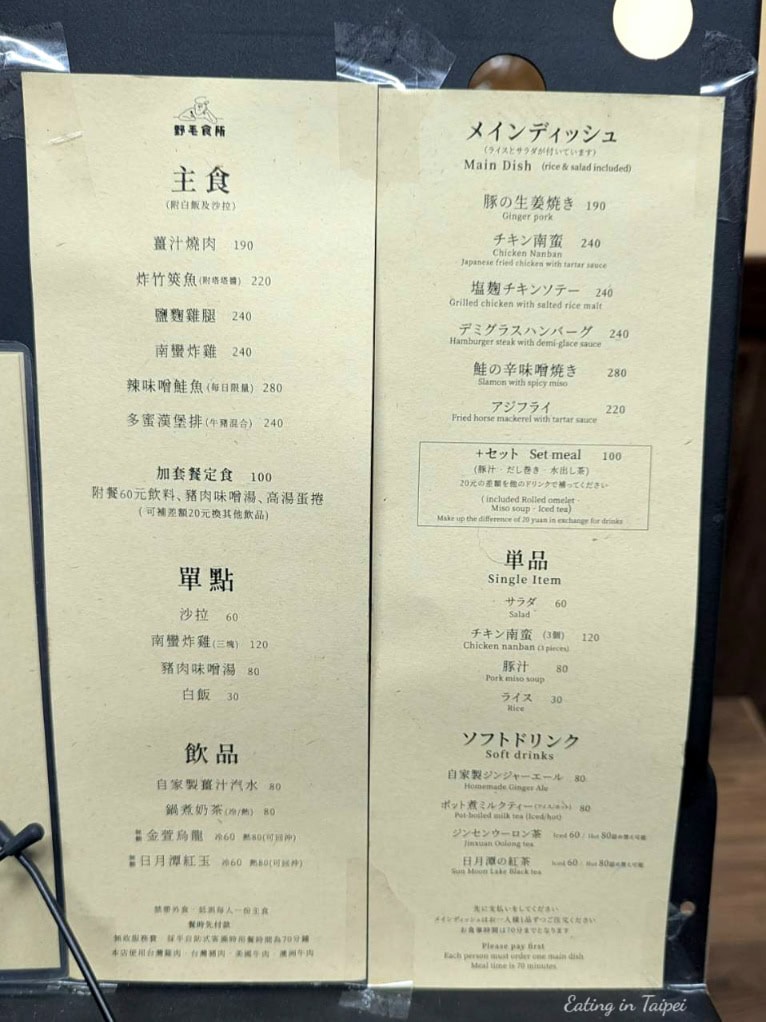 野毛食所
主食
(附白飯及沙拉)
薑汁燒肉 190
炸竹筴魚(附塔塔醬) 220
鹽麴雞腿 240
南蠻炸雞 240
辣味噌鮭魚(每日限量) 280
多蜜漢堡排(牛豬混合) 240
加套餐定食 100
附餐60元飲料、豬肉味噌湯、高湯蛋捲
(可補差額20元換其他飲品)
單點
沙拉 60
南蠻炸雞(三塊) 120
豬肉味噌湯 80
白飯 30
飲品
自家製薑汁汽水 80
鍋煮奶茶(冷/熱) 80
無糖 金萱烏龍 冷60 熱80(可回沖)
無糖 日月潭紅玉 冷60 熱80(可回沖)
禁帶外食．低消每人一份主食
餐時先付款
無收服務費 採半自助式客滿時用餐時間為70分鐘
本店使用台灣雞肉．台灣豬肉．美國牛肉．澳洲牛肉
メインディッシュ
(ライスとサラダが付いています)
Main Dish (rice & salad included)
豚の生姜焼き 190
Ginger pork
チキン南蛮 240
Chicken Nanban
Japanese fried chicken with tartar sauce
塩麹チキンソテー 240
Grilled chicken with salted rice malt
デミグラスハンバーグ 240
Hamburger steak with demi-glace sauce
鮭の辛味噌焼き 280
Slamon with spicy miso
アジフライ 220
Fried horse mackerel with tartar sauce
+セット Set meal 100
(豚汁・だし巻き・水出し茶)
20元の差額を他のドリンクで補ってください
(included Rolled omelet·
Miso soup · Iced tea)
Make up the difference of 20 yuan in exchange for drinks
単品
Single Item
サラダ 60
Salad
チキン南蛮 (3個) 120
Chicken nanban (3 pieces)
豚汁 80
Pork miso soup
ライス 30
Rice
ソフトドリンク
Soft drinks
自家製ジンジャーエール 80
Homemade Ginger Ale
ポット煮ミルクティー(アイス/ホット) 80
Pot-boiled milk tea (Iced/hot)
ジンセンウーロン茶 Iced 60 / Hot 80詰め替え可能
Jinxuan Oolong tea
日月潭の紅茶 Iced 60 / Hot 80詰め替え可能
Sun Moon Lake Black tea
先に支払いをしてください
メインディッシュはお一人様1品ずつご注文ください
お食事時間は70分までとなります
Please pay first
Each person must order one main dish
Meal time is 70 minutes
Eating in Taipei